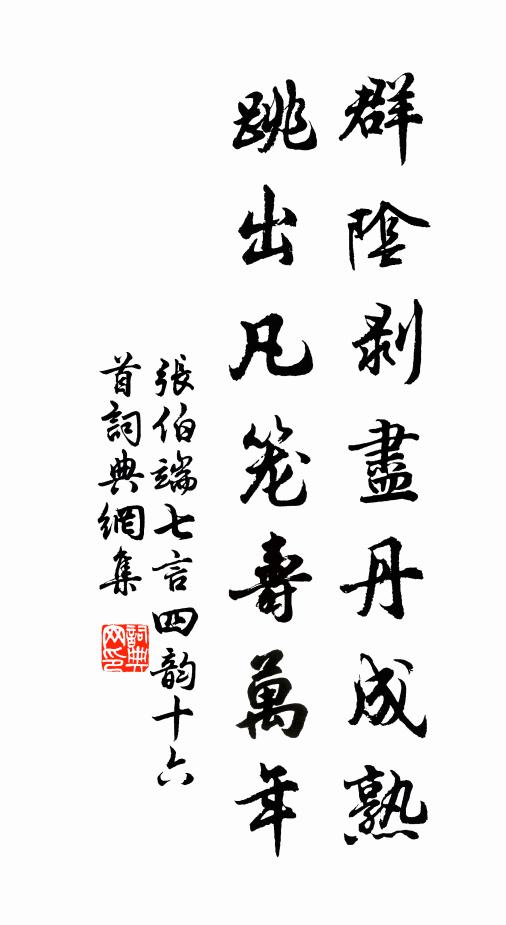 群陰剥盡丹成熟
跳出凡笼壽萬年
張伯端七言四韵十六
首詞典網集
詞典
网印